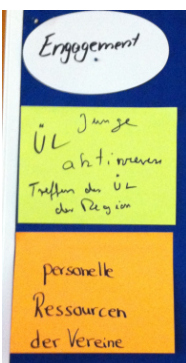 Engagement
ÜL Junge
aktivieren
Treffen der ÜL
der Region
personelle
Ressourcen
der Vereine